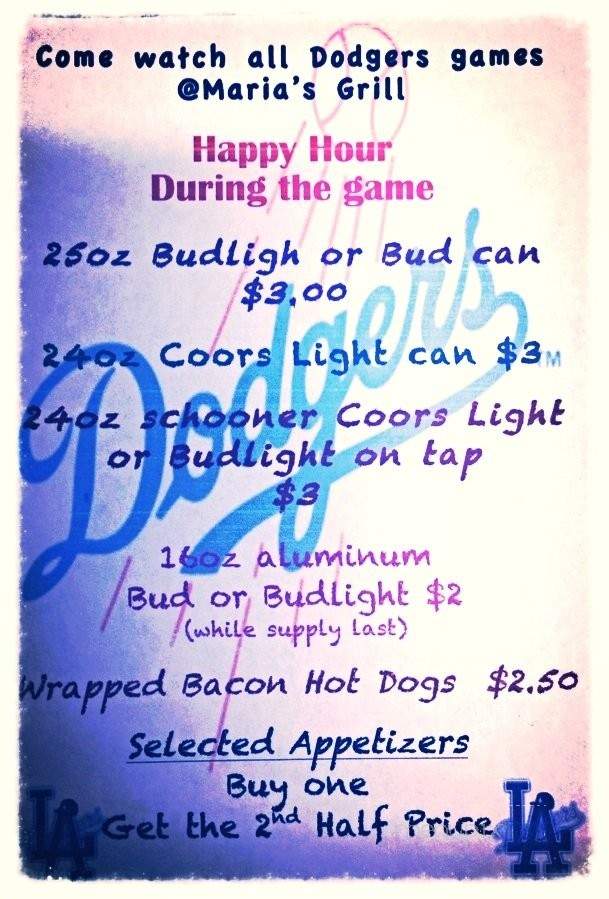 Come watch all Dodgers games
@Maria's Grill
Happy Hour
During the game
25oz Budligh or Bud can
$3.00
24oz Coors Light can $3
24oz schooner Coors Light
or Budlight on tap
$3
16oz aluminum
Bud or Budlight $2
(while supply last)
Wrapped Bacon Hot Dogs $2.50
Selected Appetizers
Buy one
Get the 2nd Half Price
Dodgers
TM
LA
LA